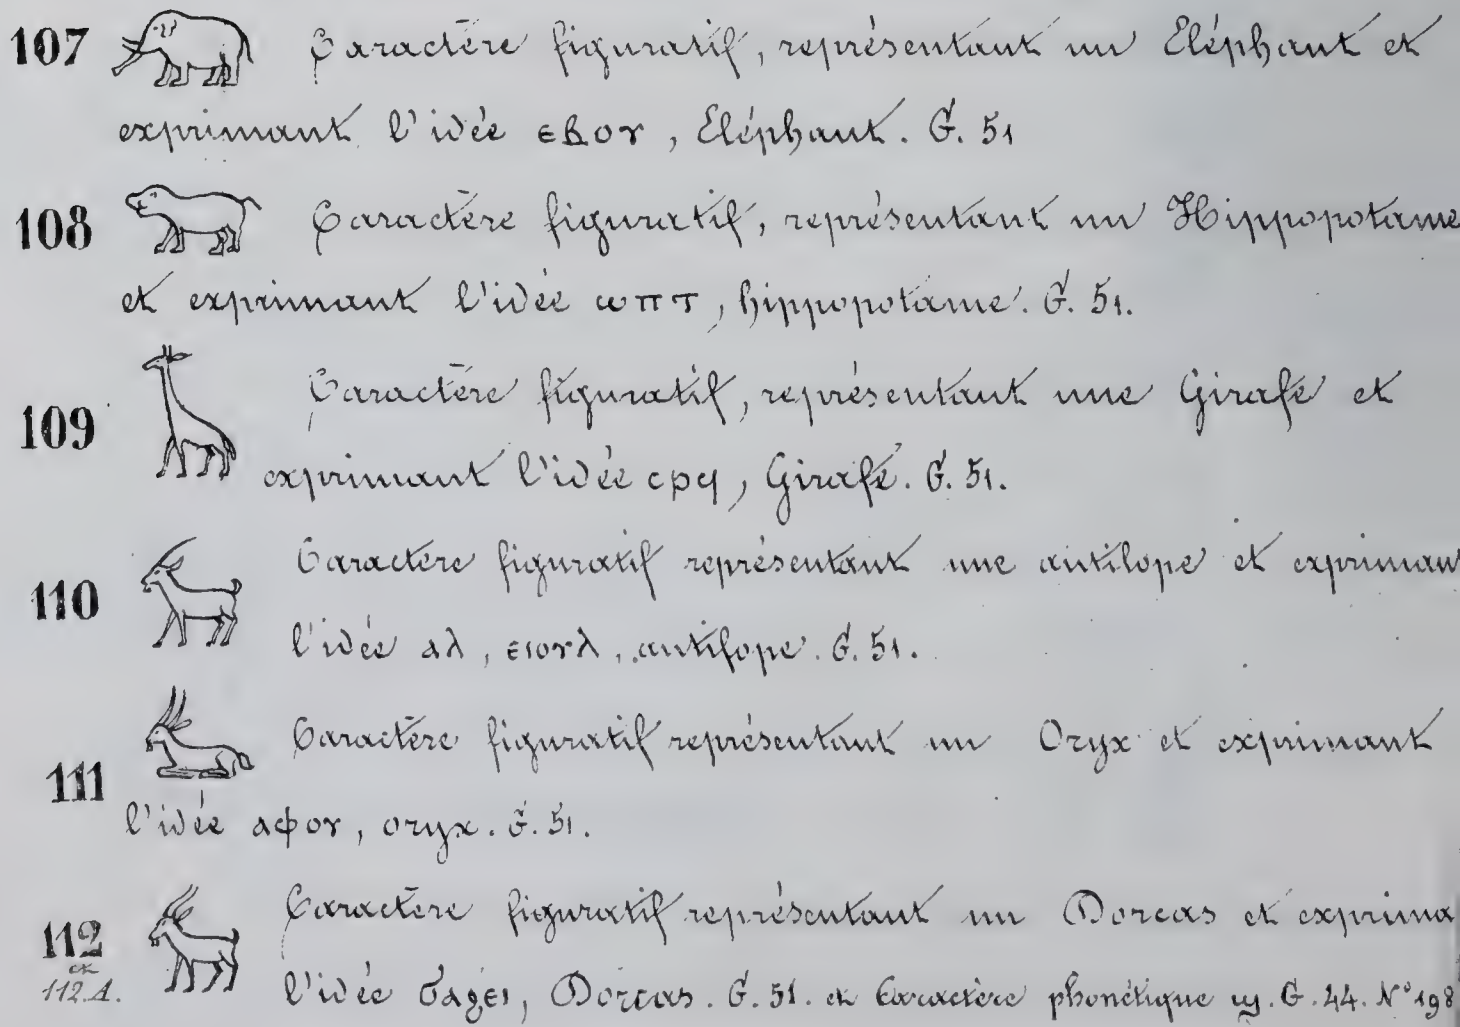 107 Caractère figuratif, représentant un Eléphant et
exprimant l'idée ⲉⲃⲟⲩ, Eléphant. G. 51
108 Caractère figuratif, représentant un Hippopotame
et exprimant l'idée ⲱⲡⲧ, hippopotame. G. 51.
109 Caractère figuratif, représentant une Girafe et
exprimant l'idée ⲥⲣϥ, Girafe. G. 51.
110 Caractère figuratif représentant une antilope et exprimant
l'idée ⲁⲗ, ⲉⲓⲟⲩⲗ, antilope. G. 51.
111 Caractère figuratif représentant un Oryx et exprimant
l'idée ⲁⲫⲟⲩ, oryx. G. 51.
112 Caractère figuratif représentant un Dorcas et exprima
et
112.A. l'idée ϭⲁϩⲉⲓ, Dorcas. G. 51. et Caractère phonétique ϣ. G. 44. N° 198